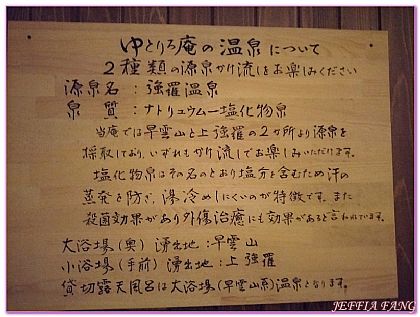 ゆとりろ庵の温泉について
２種類の源泉かけ流しをお楽しみください
源泉名：強羅温泉
泉質：ナトリュウムー塩化物泉
当庵では早雲山と上強羅の２か所より源泉を
採取しており、いずれもかけ流しでお楽しみいただけます。
塩化物泉はその名のとおり塩分を含むため汗の
蒸発を防ぎ、湯冷めしにくいのが特徴です。また
殺菌効果があり外傷治癒にも効果があると言われています。
大浴場（奥）湧出地：早雲山
小浴場（手前）湧出地：上強羅
貸切露天風呂は大浴場（早雲山系）温泉となります。
JEFFIA FANG